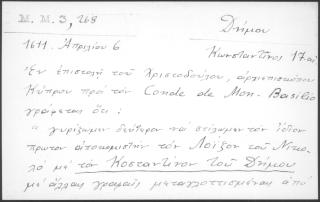 M. M. 3, 268
Δήμου
1611. Ἀπριλίου 6
Κωνσταντῖνος 17 αἰ
Ἐν ἐπιστολῇ τοῦ Χριστοδούλου, ἀρχιεπισκόπου
Κύπρου πρὸ τὸν Conde de Mon-Basilio
γράφεται ὅτι:
"γυρίζωμεν δεύτερον νὰ στείλωμεν τὸν ἴδιον
πρωτον ἀποκομιστὴν τὸν Λοΐζον τοῦ Νικο-
λὸ μὲ τὸν Κοσταντῖνον τοῦ Δήμου
μὲ ἄλλαις γραφαῖς μεταγλοττισμέναις ἀπὸ